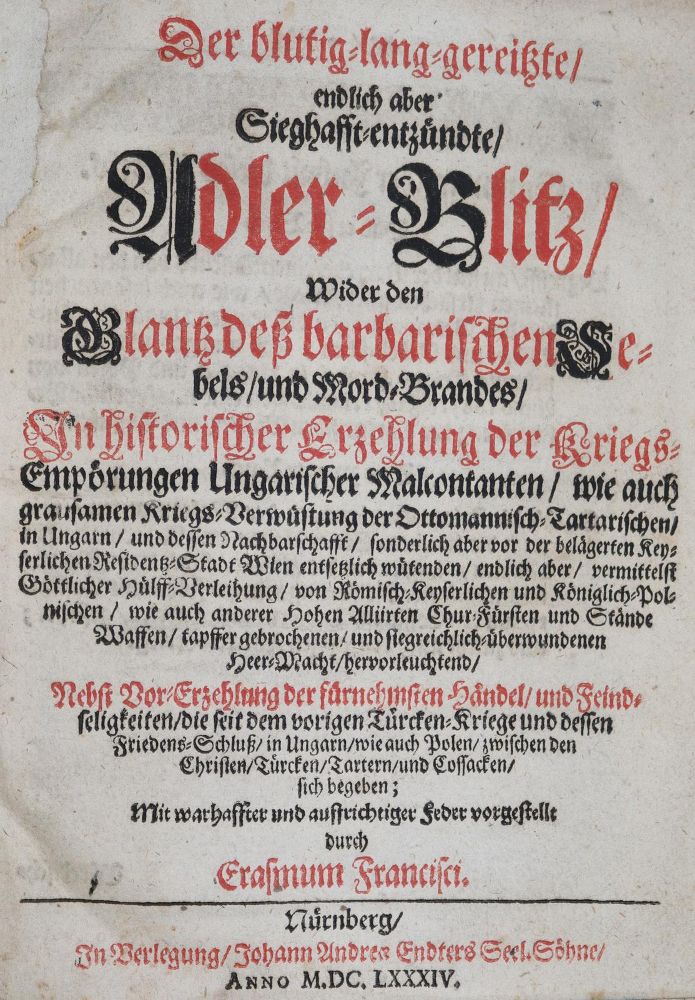 Der blutig-lang-gereitzte/
endlich aber
Sieghafft-entzündte/
Adler-Blitz/
Wider den
Glantz deß barbarischen Se-
bels/und Mord-Brandes/
In historischer Erzehlung der Kriegs-
Empörungen Ungarischer Malcontanten/ wie auch
grausamen Kriegs-Verwüstung der Ottomannisch-Tartarischen/
in Ungarn/ und dessen Nachbarschafft/ sonderlich aber vor der belägerten Key-
serlichen Residentz-Stadt Wien entsetzlich wütenden/ endlich aber/ vermittelst
Göttlicher Hülff-Verleihung/ von Römisch-Keyserlichen und Königlich-Pol-
nischen/ wie auch anderer Hohen Alliirten Chur-Fürsten und Stände
Waffen/ tapffer gebrochenen/ und siegreichlich-überwundenen
Heer-Macht/hervorleuchtend/
Nebst Vor-Erzehlung der fürnehmsten Händel/ und Feind-
seligkeiten/die seit dem vorigen Türcken-Kriege und dessen
Friedens-Schluß/ in Ungarn/wie auch Polen/zwischen den
Christen/Türcken/Tartern/und Cossacken/
sich begeben;
Mit warhaffter und auffrichtiger Feder vorgestellt
durch
Erasmum Francisci.
Nürnberg/
In Verlegung/ Johann Andreæ Endters Seel. Söhne/
ANNO M.DC. LXXXIV.